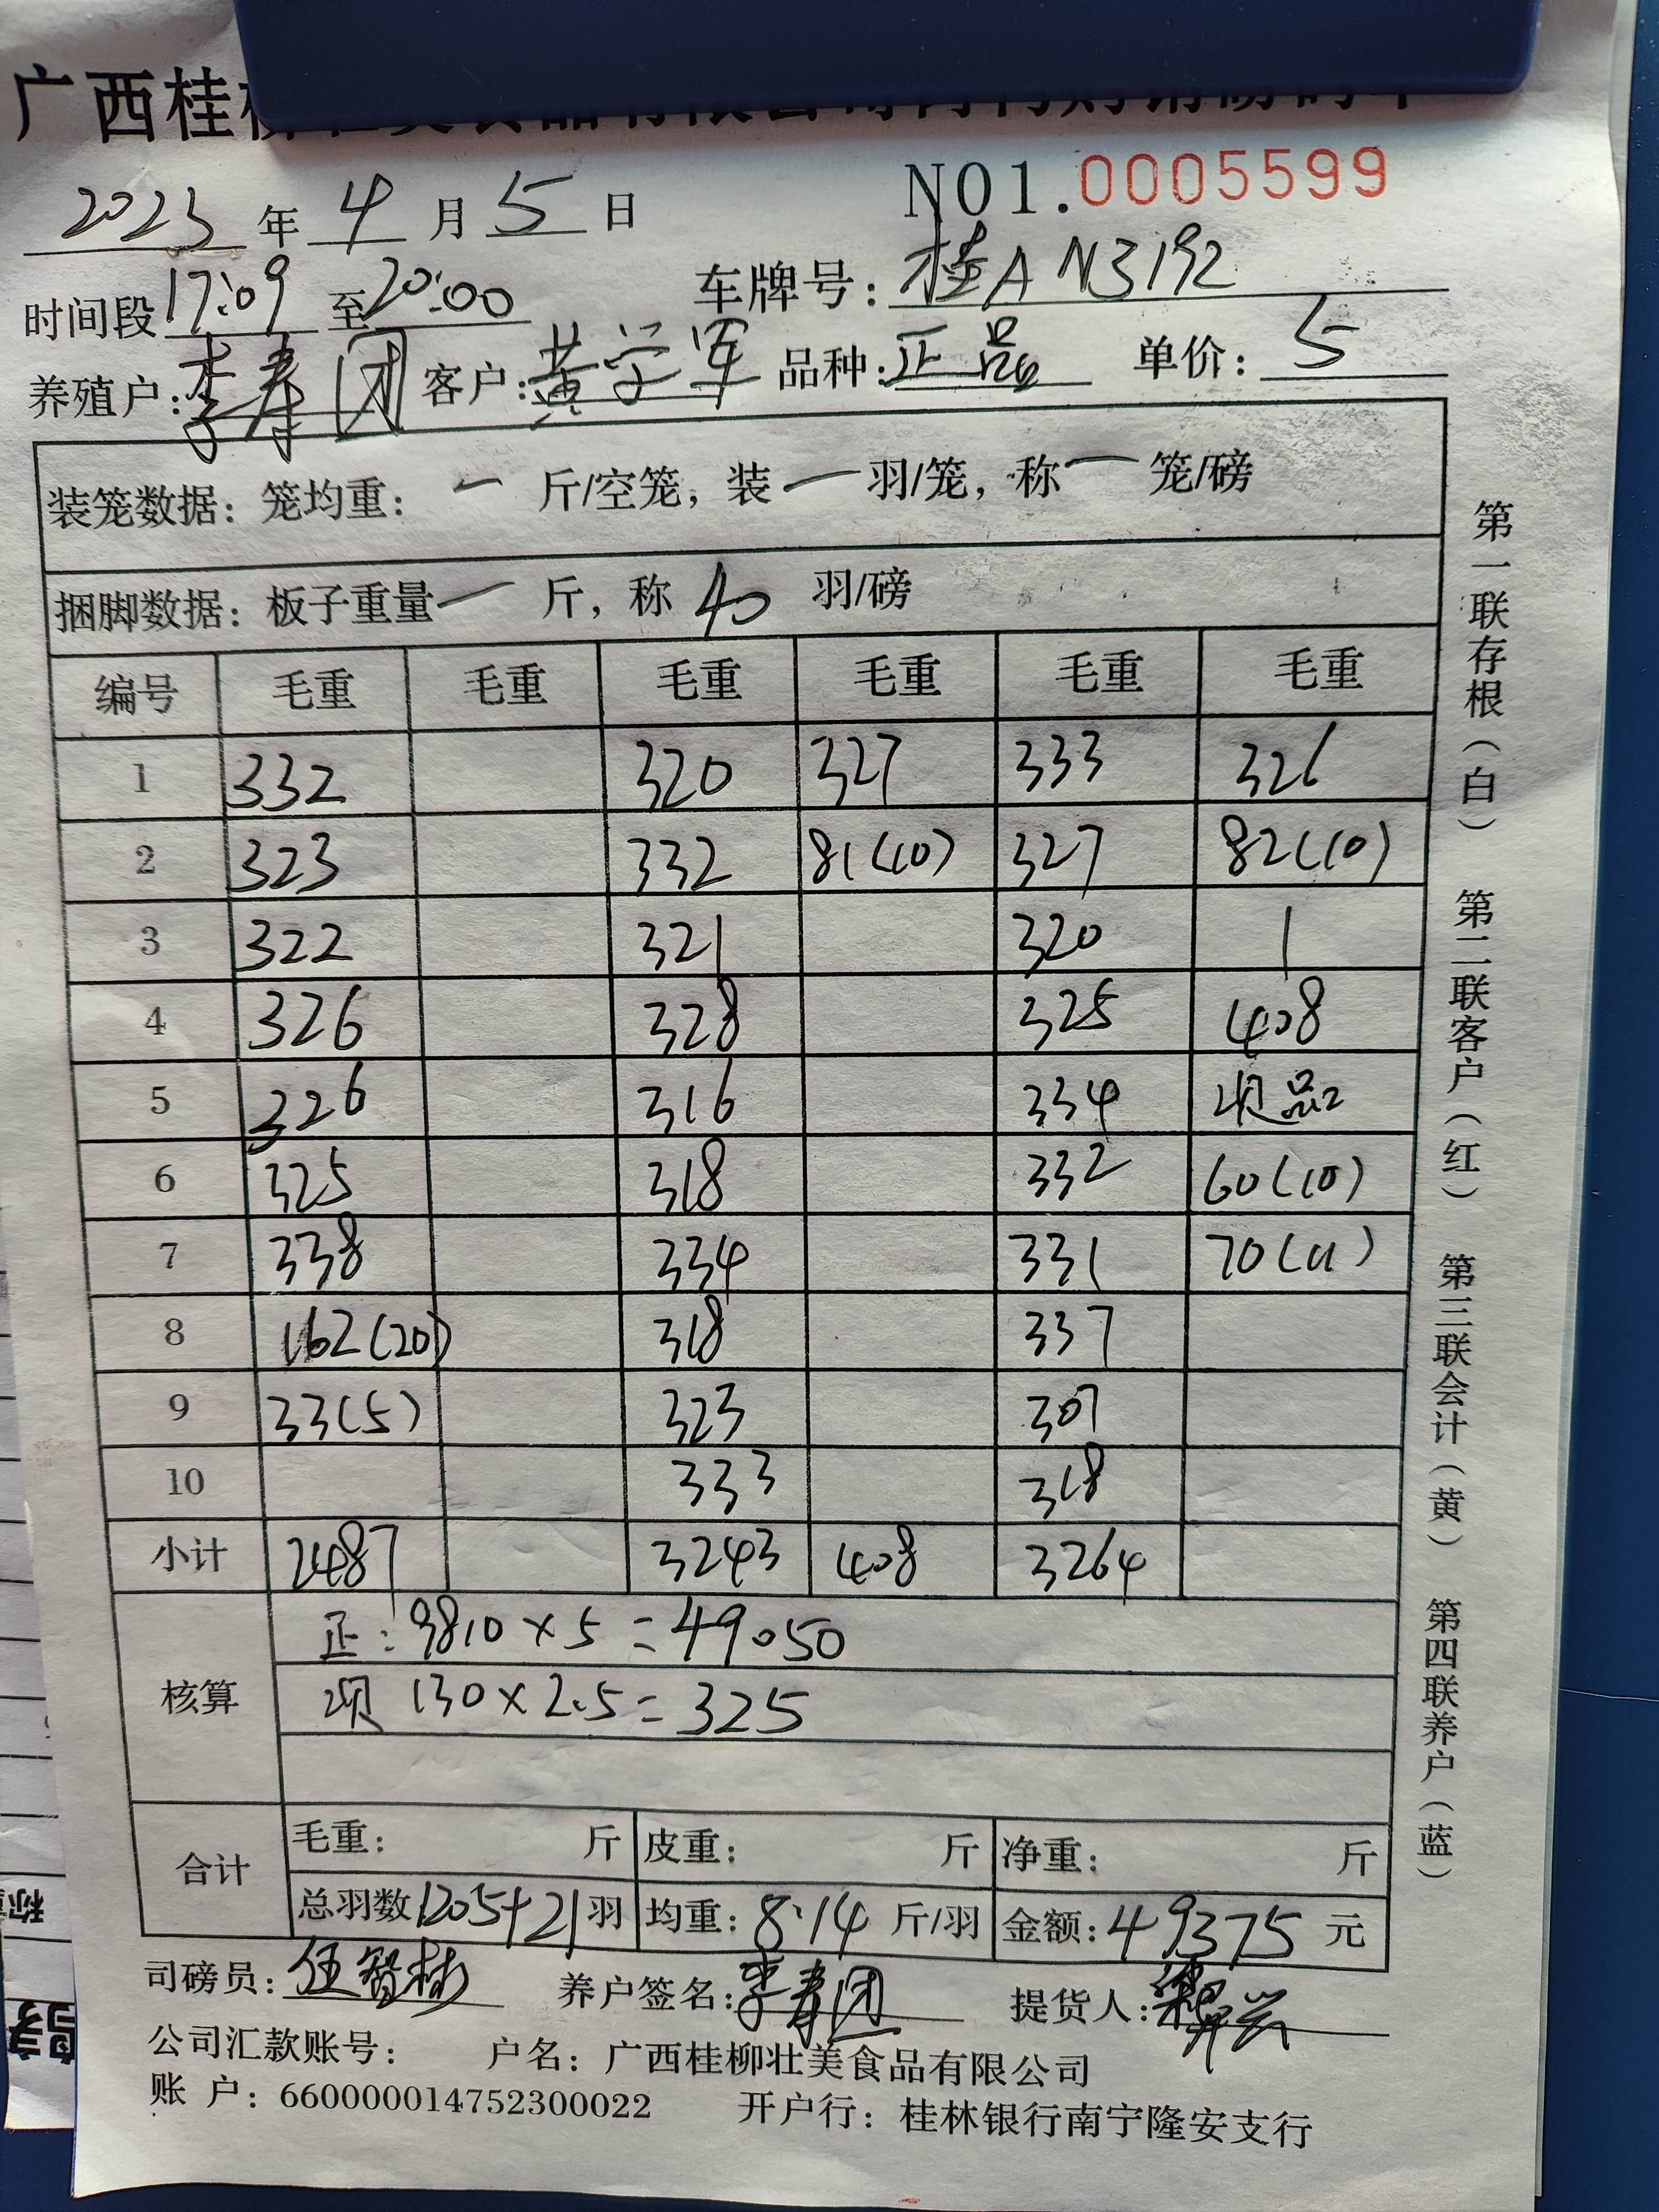 广西桂
NO1.0005599
2023年4月5日
时间段17:09至20:00 车牌号:桂A N3192
养殖户:李寿团 客户:黄学军 品种:正品 单价:5
装笼数据:笼均重:一 斤/空笼,装一羽/笼,称一 笼/磅
捆脚数据:板子重量一 斤,称 40 羽/磅
编号 毛重 毛重 毛重 毛重 毛重 毛重
1 332 320 327 333 326
2 323 332 81(10) 327 82(10)
3 322 321 320 1
4 326 328 325 408
5 326 316 334 项品
6 325 318 332 60(10)
7 338 334 331 70(11)
8 162(20) 318 337
9 33(5) 323 307
10 333 318
小计 2487 3243 408 3264
核算
正:9810×5=49050
项 130×2.5=325
合计
毛重: 斤 皮重: 斤 净重: 斤
总羽数1205+21羽 均重:8.14 斤/羽 金额:49375 元
司磅员:伍智彬 养户签名:李寿团 提货人:
公司汇款账号: 户名:广西桂柳壮美食品有限公司
账 户:660000014752300022 开户行:桂林银行南宁隆安支行
第一联存根(白) 第二联客户(红) 第三联会计(黄) 第四联养户(蓝)